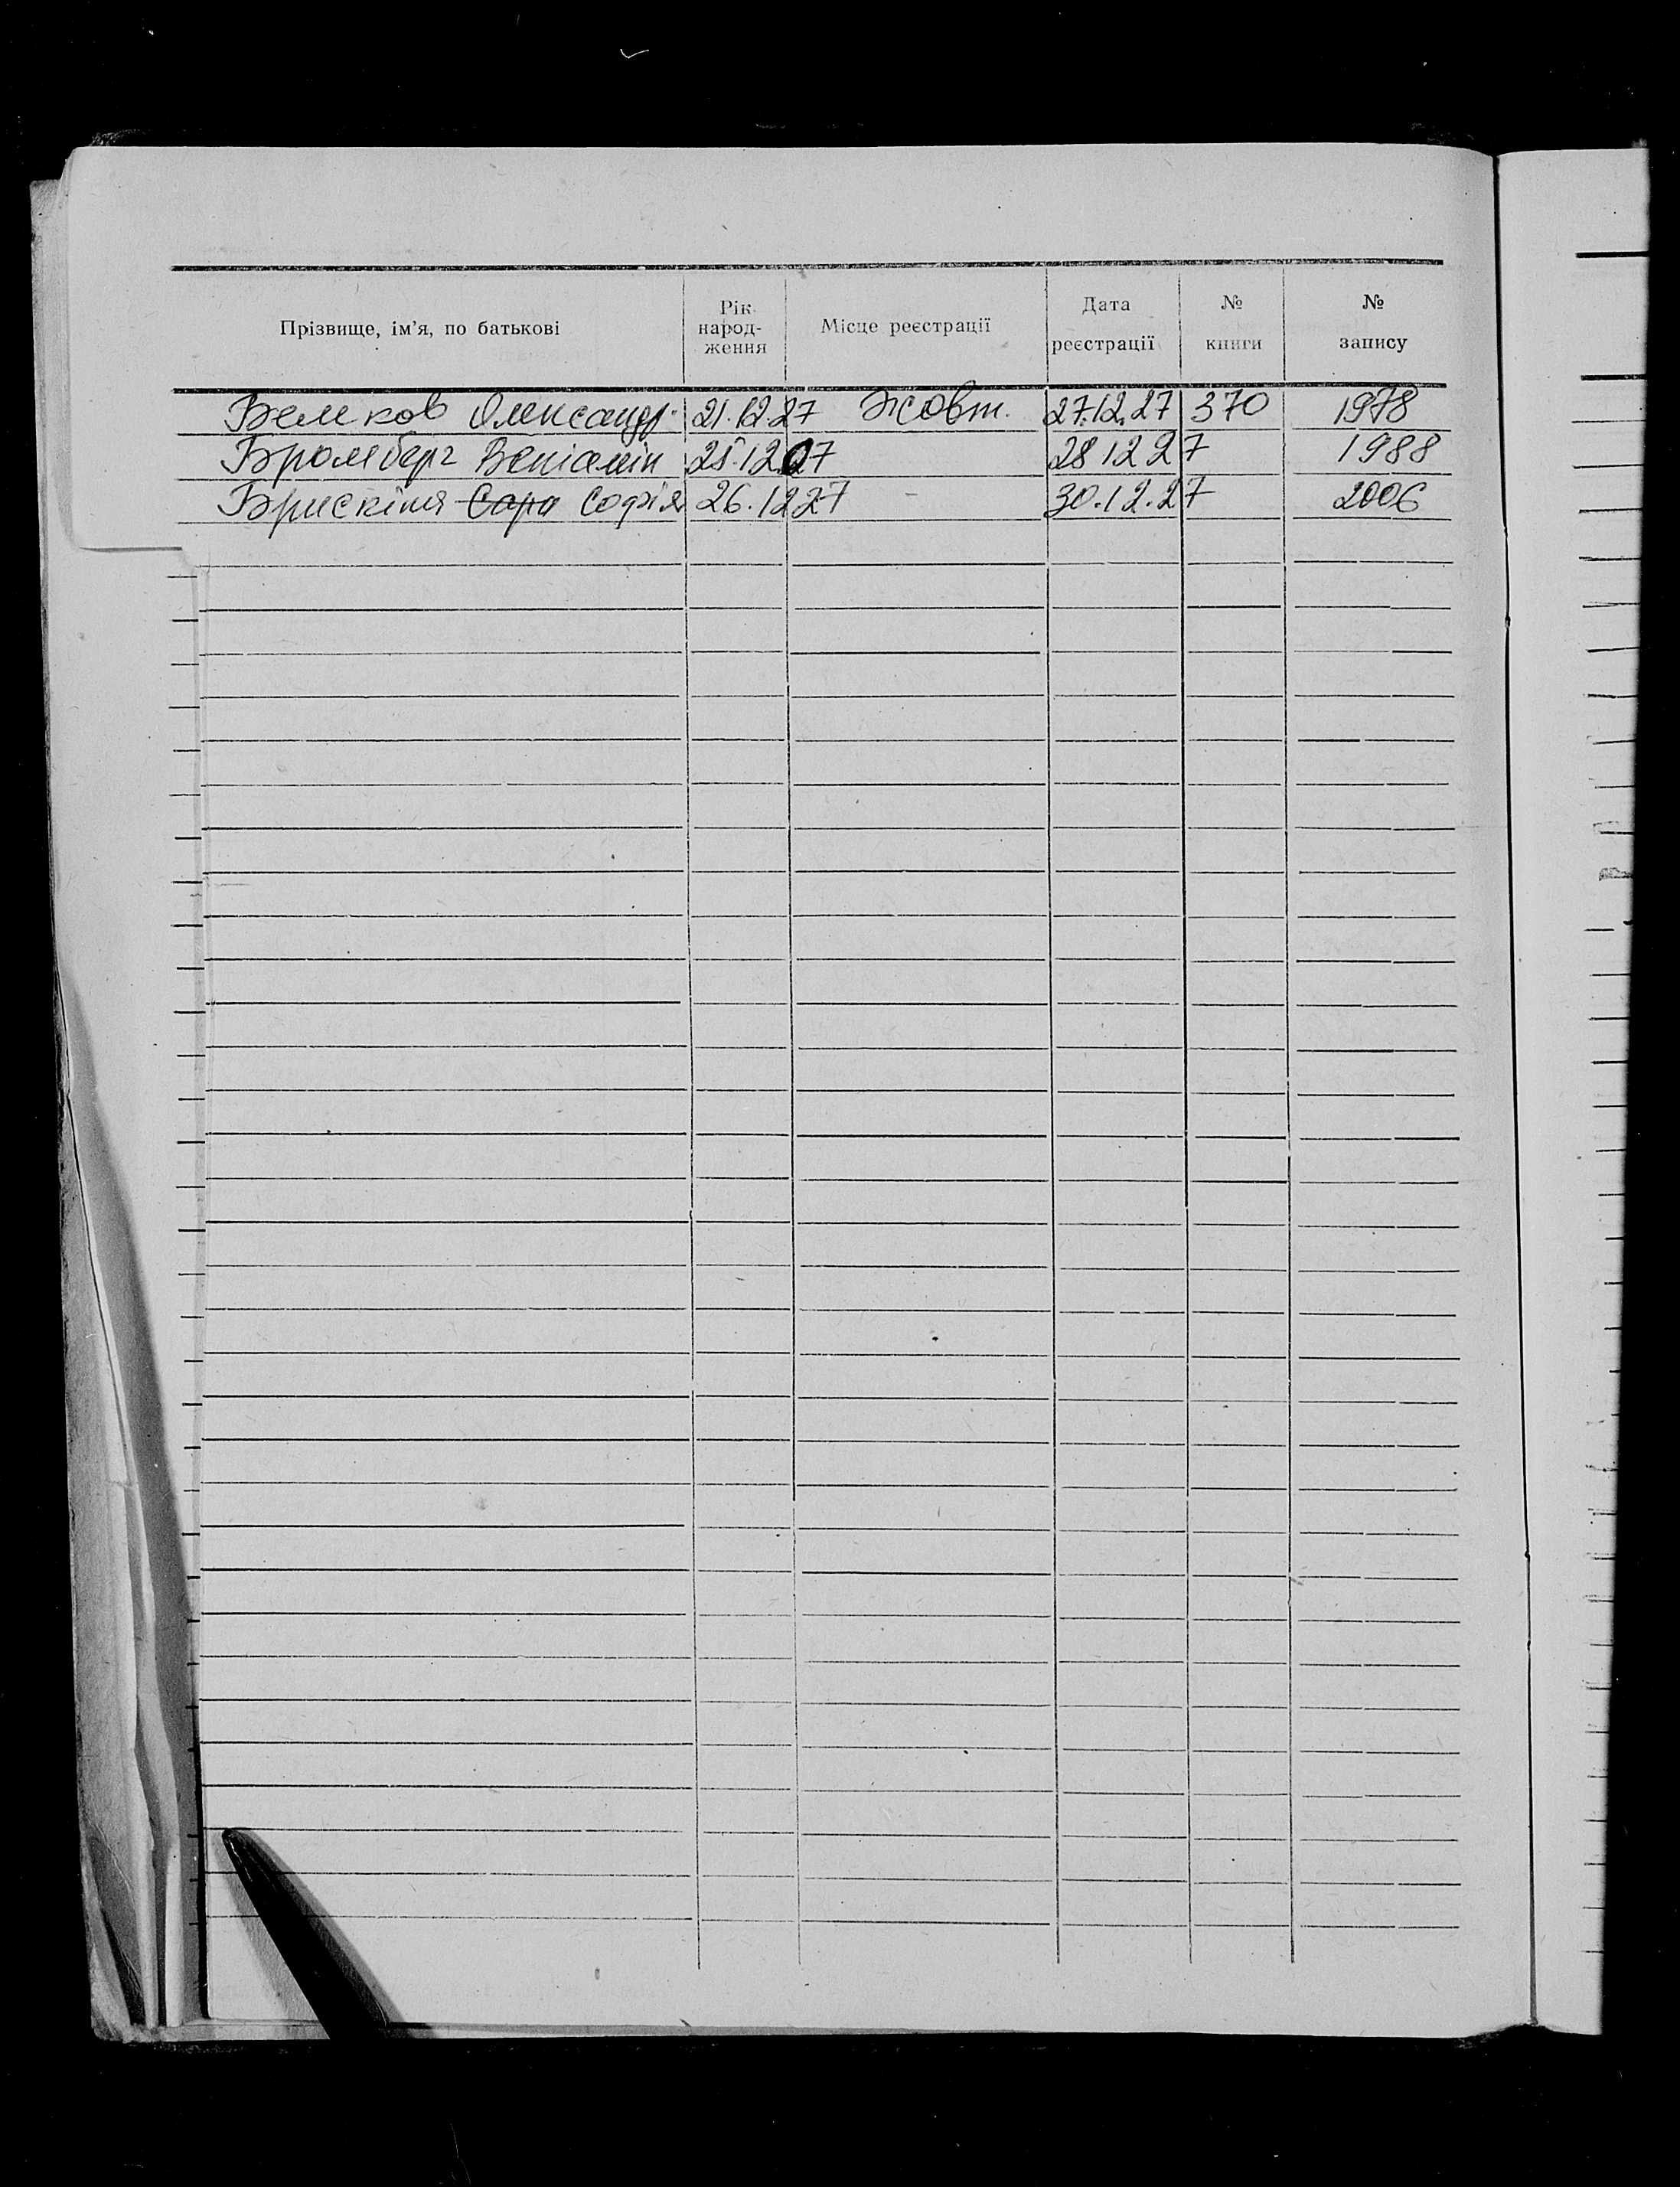 Прізвище, ім'я, по батькові Рік народ-ження Місце реєстрації Дата реєстрації № книги № запису
Олександр 21.12.27 Жовт. 27.12.27 370 1978
Бромберг Веніамін 25.12.27 28 12 27 1988
Брискіна Сара Софія 26.12 27 - 30.12.27 2006